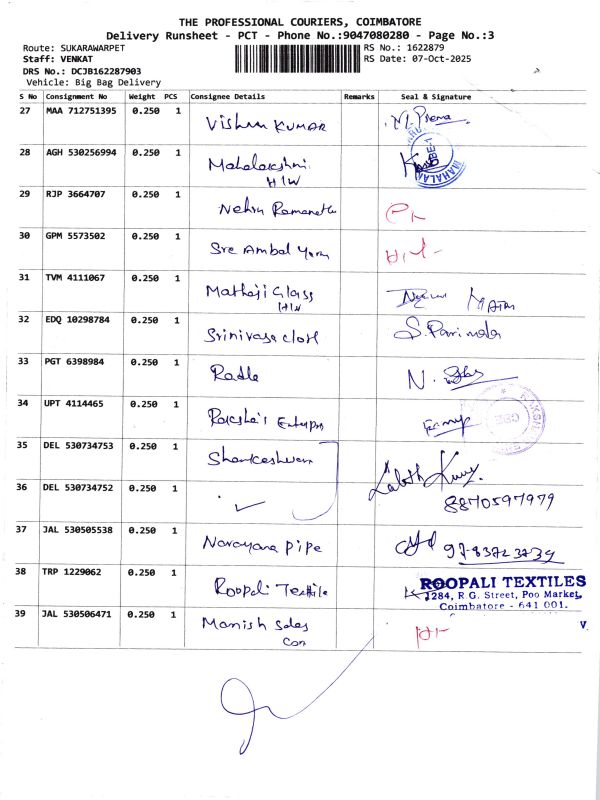 THE PROFESSIONAL COURIERS, COIMBATORE
Delivery Runsheet - PCT - Phone No.:9047080280 - Page No.:3
Route: SUKARAWARPET
RS No.: 1622879
Staff: VENKAT
RS Date: 07-Oct-2025
DRS No.: DCJB162287903
Vehicle: Big Bag Delivery
S No Consignment No Weight PCS Consignee Details Remarks Seal & Signature
27 MAA 712751395 0.250 1 Vishnu KUMAR
28 AGH 530256994 0.250 1 Mahalakshmi
H/W
29 RJP 3664707 0.250 1 Nehru
30 GPM 5573502 0.250 1 Sre Ambal
31 TVM 4111067 0.250 1 Mathaji Glass
H/W
32 EDQ 10298784 0.250 1 Srinivasa
33 PGT 6398984 0.250 1
34 UPT 4114465 0.250 1
35 DEL 530734753 0.250 1
36 DEL 530734752 0.250 1 ✓
8870597979
37 JAL 530505538 0.250 1 Narayana Pipe
38 TRP 1229062 0.250 1 Roopali Textile
ROOPALI TEXTILES
1284, R.G. Street, Poo Market,
Coimbatore - 641 001.
39 JAL 530506471 0.250 1 Manish Sales
V.